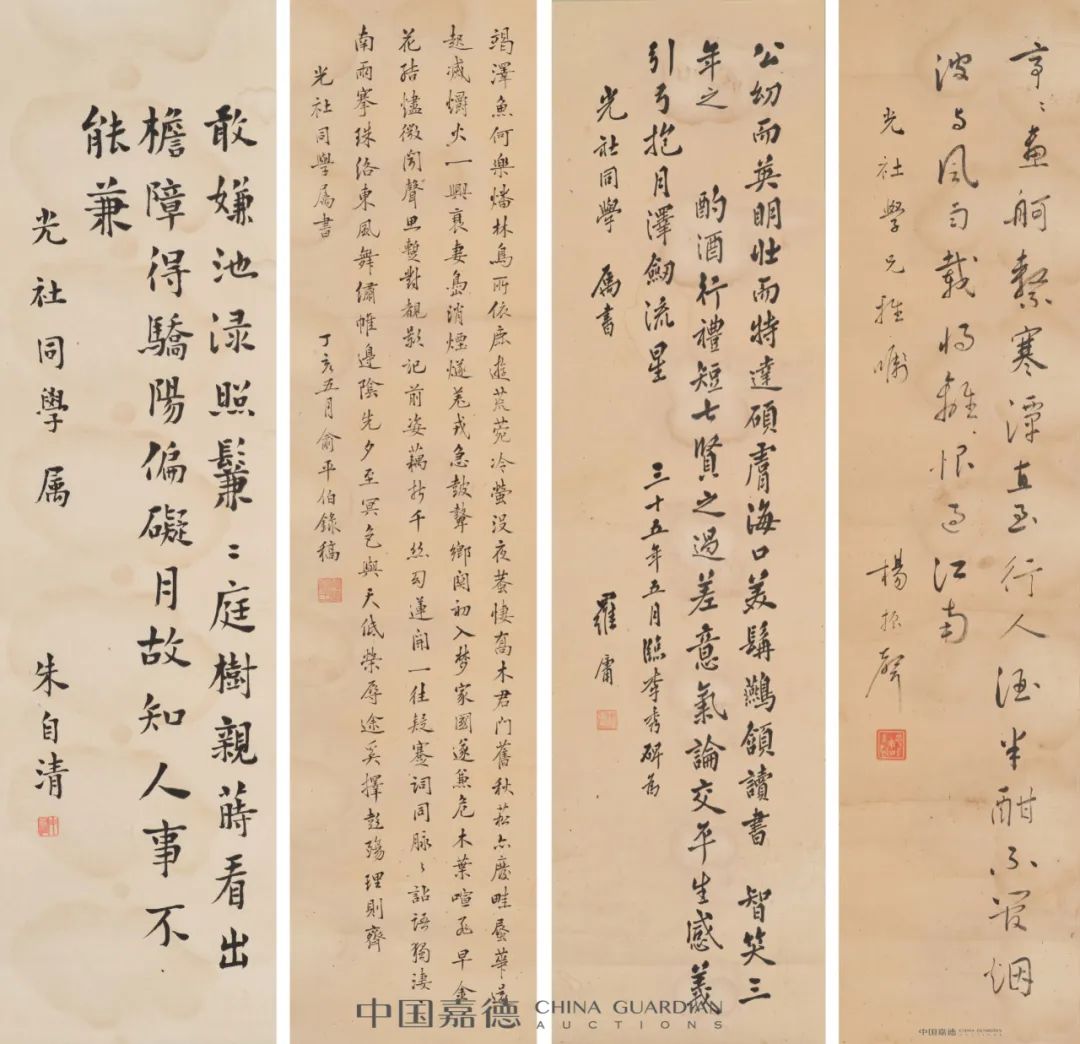 亭〻畫舸繫寒潭直至行人酒半酣不管烟
波与風雨載將離恨過江南
光社學兄雅嘱 楊振聲
公幼而英明壯而特達碩膚海口美髯鷰頷讀書 智笑三
年之 酌酒行禮短七賢之過差意氣論交平生感義
引弓抱月澤劒流星 三十五年五月臨李秀碑為
光社同學 屬書 羅庸
竭澤魚何樂燔林鳥所依鹿遊荒菀冷螢没夜悽喬木君門舊秋菘畦蜃華
起滅爝火一興衰妻島消煙燧羌戎急鼓鼙鄉関初入梦家國遂兼危木葉喧飛早金
花結燼微聞聲思蹔對覩影記前姿藕折千絲匀蓮開一往疑蹇詞同脉〻詁語獨淒
南雨搴珠洛東風舞繡帷邊陰先夕至冥色與天低榮辱途奚擇彭殤理則齊
光社同學属書 丁亥五月俞平伯錄稿
敢嫌池淥照鬑〻庭樹親蒔看出
檐障得驕陽偏礙月故知人事不
能兼
光社同學属 朱自清
中国嘉德 CHINA GUARDIAN AUCTIONS
中国嘉德 CHINA GUARDIAN AUCTIONS